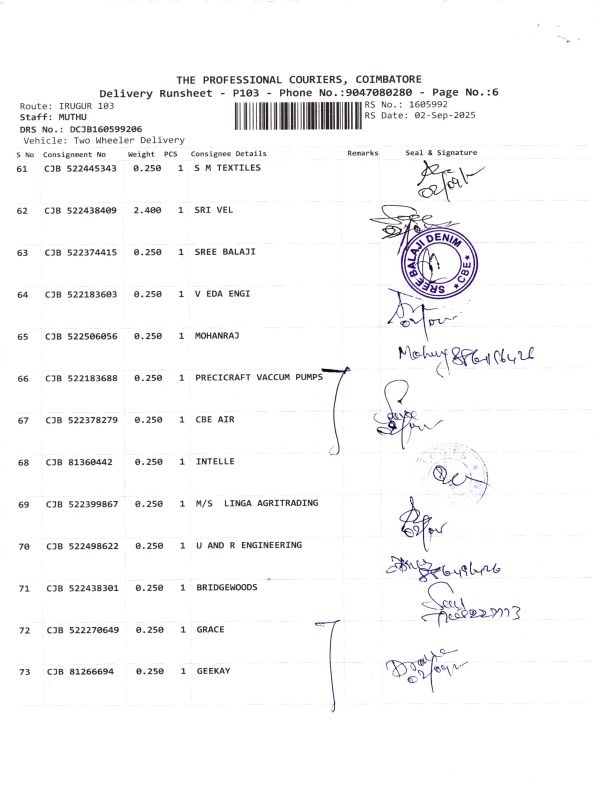 THE PROFESSIONAL COURIERS, COIMBATORE
Delivery Runsheet - P103 - Phone No.:9047080280 - Page No.:6
Route: IRUGUR 103
RS No.: 1605992
Staff: MUTHU
RS Date: 02-Sep-2025
DRS No.: DCJB160599206
Vehicle: Two Wheeler Delivery
S No Consignment No Weight PCS Consignee Details Remarks Seal & Signature
61 CJB 522445343 0.250 1 S M TEXTILES
62 CJB 522438409 2.400 1 SRI VEL
63 CJB 522374415 0.250 1 SREE BALAJI
SREE BALAJI DENIM * CBE *
64 CJB 522183603 0.250 1 V EDA ENGI
65 CJB 522506056 0.250 1 MOHANRAJ
66 CJB 522183688 0.250 1 PRECICRAFT VACCUM PUMPS
67 CJB 522378279 0.250 1 CBE AIR
68 CJB 81360442 0.250 1 INTELLE
69 CJB 522399867 0.250 1 M/S LINGA AGRITRADING
70 CJB 522498622 0.250 1 U AND R ENGINEERING
71 CJB 522438301 0.250 1 BRIDGEWOODS
72 CJB 522270649 0.250 1 GRACE
73 CJB 81266694 0.250 1 GEEKAY